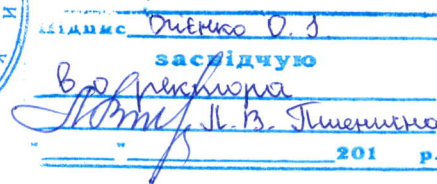 Підпис Оиєнко О. І
засвідчую
В о ректора
Л. В. Пшенична
"____"____________201 р.